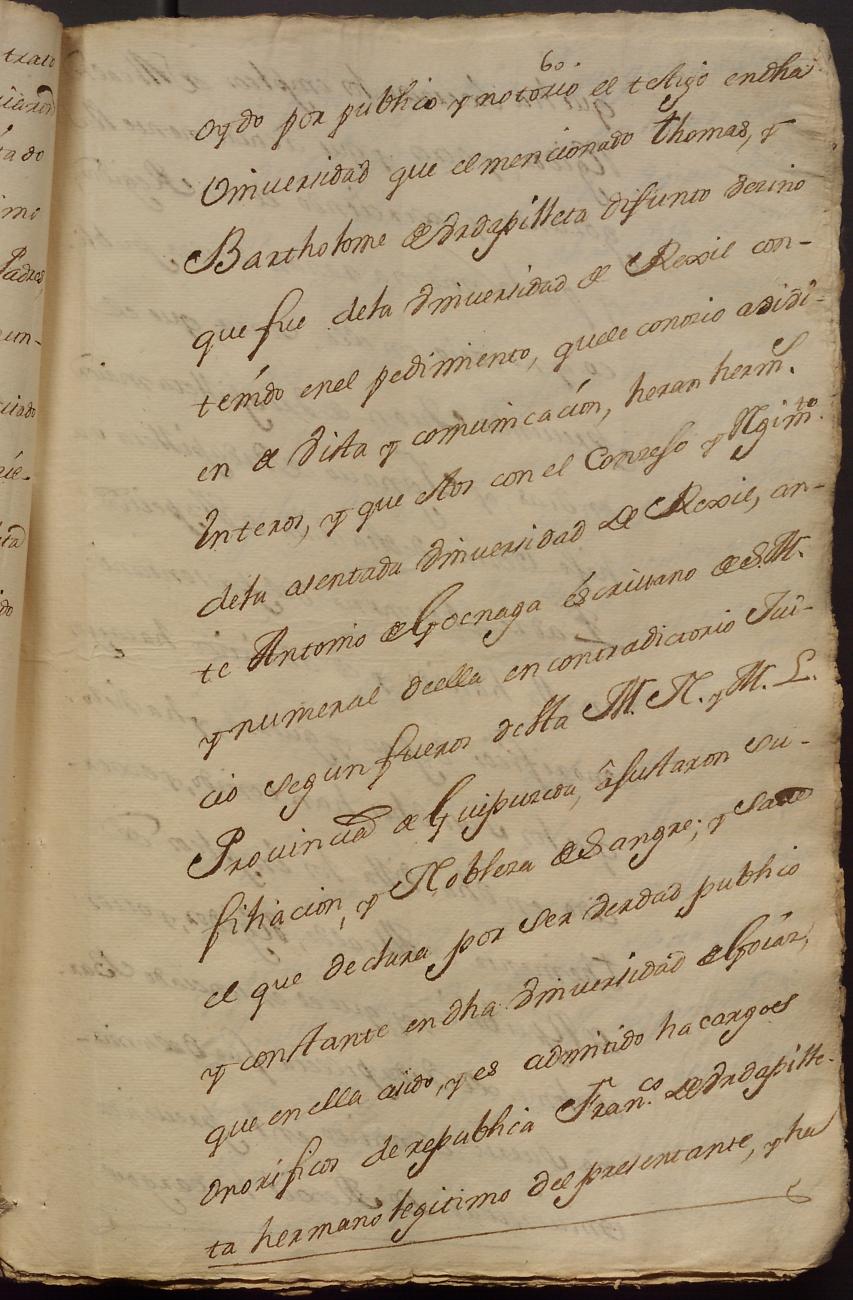 trato
tado
imo
Padres
un-
ciado
60
oydo por publico y notorio el testigo en dha
Vniversidad que el mencionado Thomas, y
Bartholome de Vrdapilleta difunto vecino
que fue dela Vniversidad de Rexil con-
tenido en el pedimiento, que le conocio asidi-
en de vista y comunicación, heran herm.s
Interos, y que estos con el Conzejo y Rgim.to
dela asentada Vniversidad de Rexil, an-
te Antonio de Goenaga éscriuano de S.M.
y numeral deella en contradictorio Jui-
cio segun fueros desta M. N. y M. L.
Provincia de Guipuzcoa, áJustaron su-
filiacion, y Nobleza de Sangre; y Save
el que declara por ser verdad publico
y constante en dha Vniversidad de Goiáz,
que en ella asido, y es admitido ha cargoes
Onorificos de republica Fran.co de Vrdapille-
ta hermano legitimo del presentante, y ha